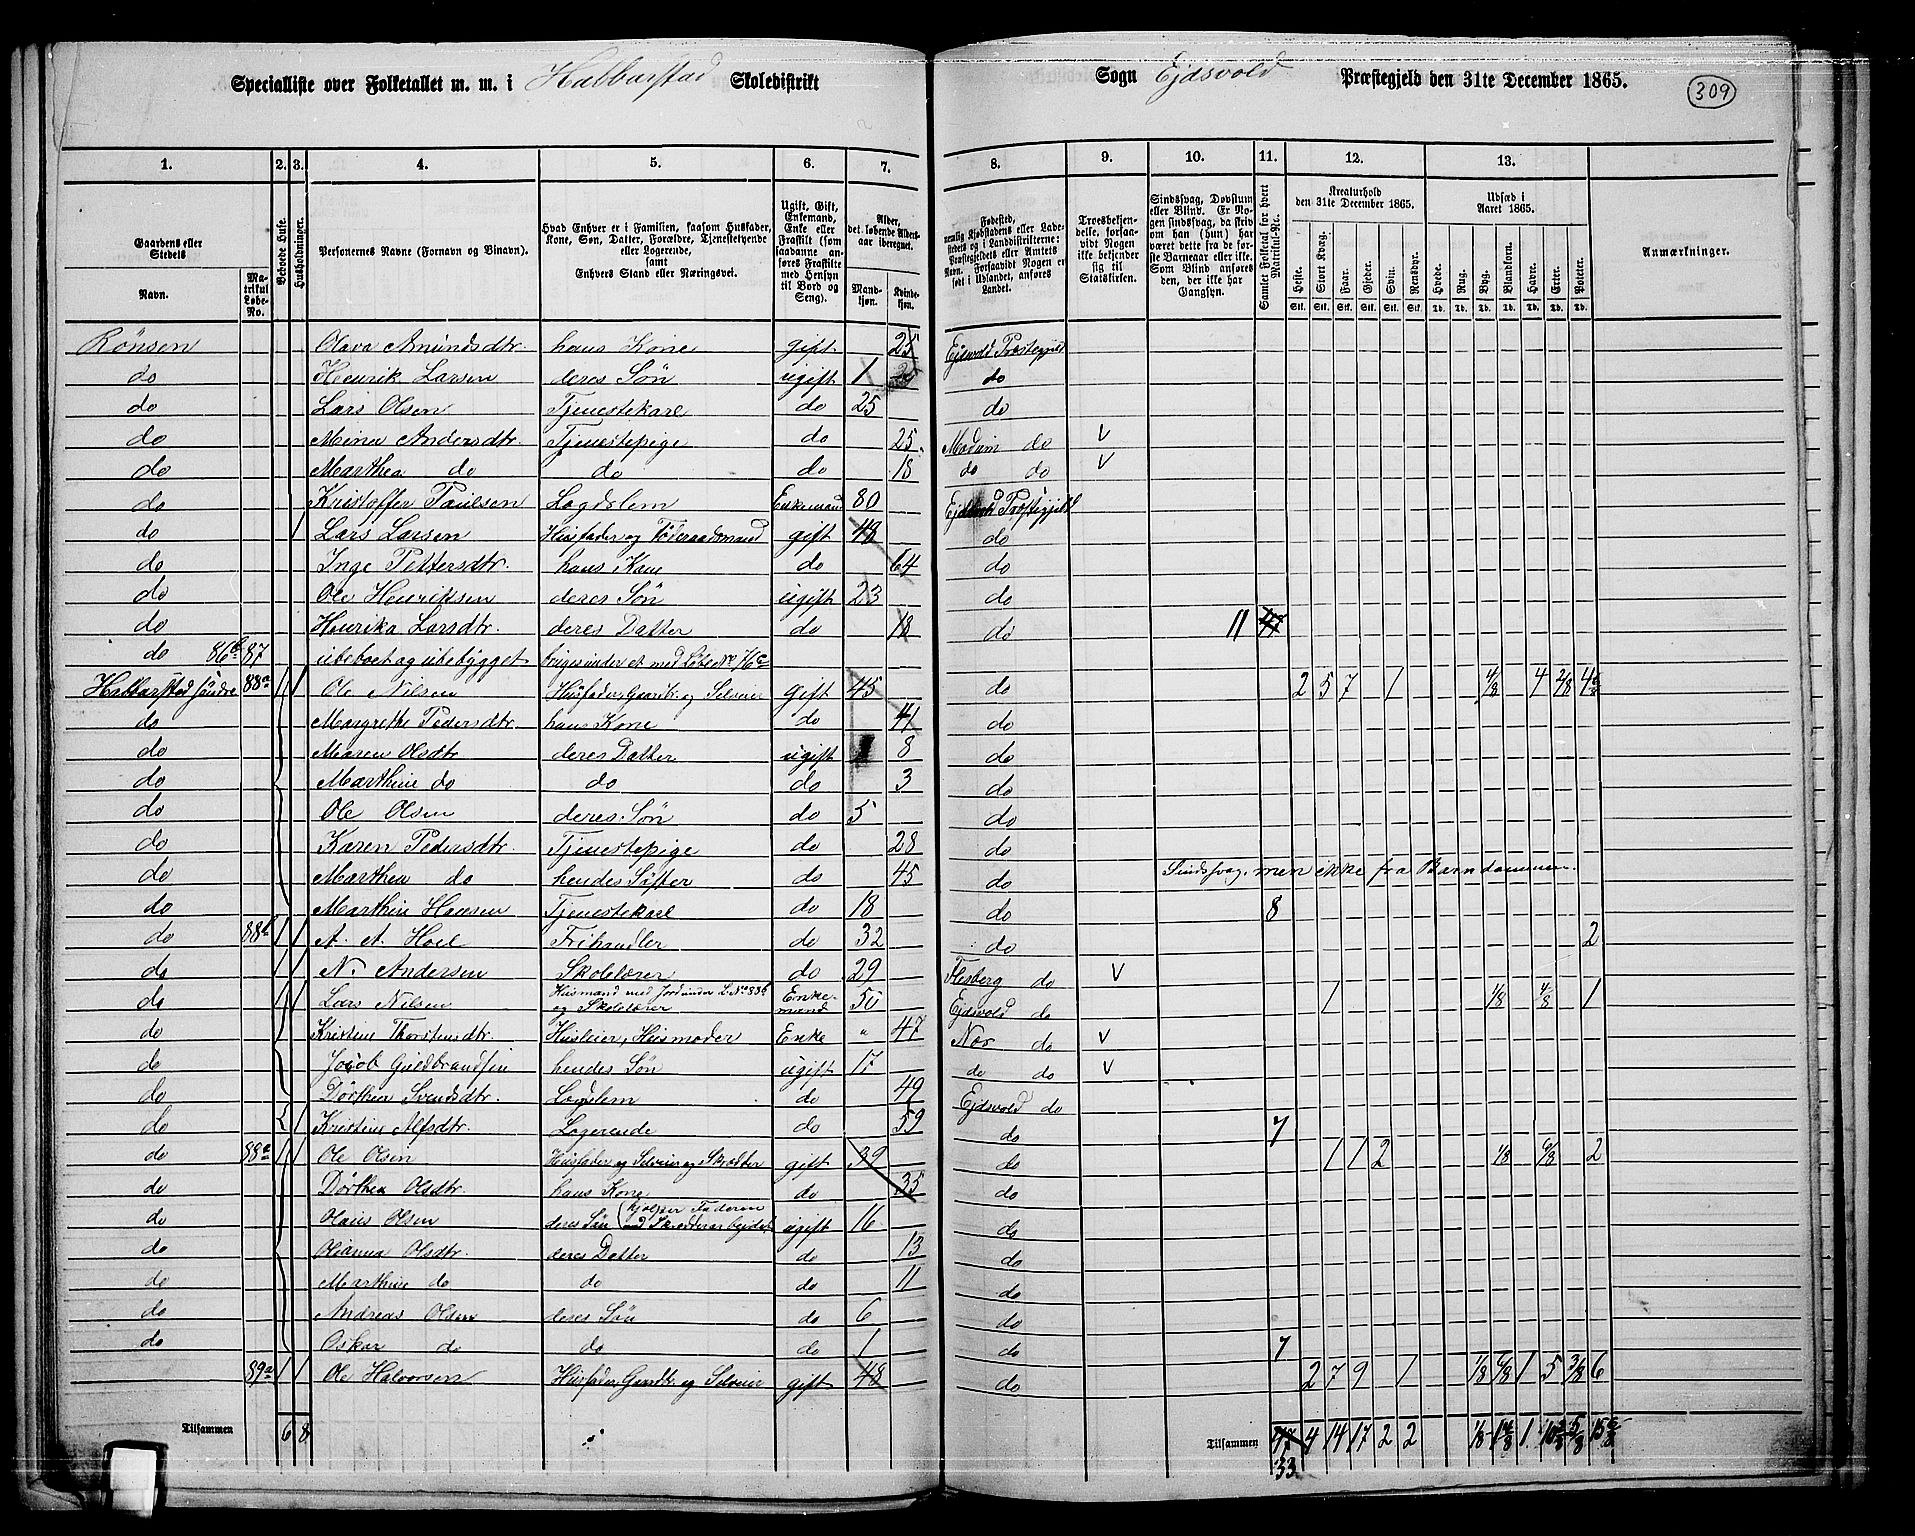 Specialliste over Folketallet m. m. i Habbarstad Skoledistrikt Sogn Ejdsvold Præstegjeld den 31te December 1865. 309
1. 2. 3. 4. 5. 6. 7. 8. 9. 10. 11. 12. 13.
Gaardens eller Stedets Navn. Matrikul Løbe-No. Beboede Huse. Husholdninger. Personernes Navne (Fornavn og Binavn). Hvad Enhver er i Familien, saasom Husfader, Kone, Søn, Datter, Forældre, Tjenestetyende eller Logerende, samt Enhvers Stand eller Næringsvei. Ugift, Gift, Enkemand, Enke eller Fraskilt (som saadanne anføres Fraskilte med Hensyn til Bord og Seng). Alder, det løbende Alders-aar iberegnet. Mandkjøn. Kvindekjøn.
Fødested, nemlig Kjøbstadens eller Ladestedets og i Landdistrikterne: Præstegjeldets eller Amtets Navn. Forsaavidt Nogen er født i Udlandet, anføres Landet. Troesbekjendelse, forsaavidt Nogen ikke bekjender sig til Statskirken. Sindssvag, Døvstum eller Blind. Er Nogen sindssvag, da skrives om han (hun) har været dette fra de første Barneaar eller ikke. Som Blind anføres den, der ikke har Gangsyn. Samlet Folketal for hvert Matrikul-No. Kreaturhold den 31te December 1865. Udsæd i Aaret 1865. Anmærkninger.
Heste. Stort Kvæg. Faar. Gjeder. Svin. Rensdyr. Hvede. Rug. Byg. Blandkorn. Havre. Erter. Poteter.
Stk. Stk. Stk. Stk. Stk. Stk. Td. Td. Td. Td. Td. Td. Td.
Rönsen Olava Amundsdtr. hans Kone gift 25 Ejdsvold Præstegjeld
do Henrik Larsen deres Søn ugift 1 do
do Lars Olsen Tjenestekarl do 25 do
do Mina Andersdtr. Tjenestepige do 25 Modum do V
do Marthea do do do 18 do do V
do Kristoffer Paulsen Logdslem Enkemand 80 Ejdsvold Præstegjeld
do 1 Lars Larsen Husfader og Föderaadsmand gift 48 do
do Inge Pettersdtr. hans Kone do 64 do
do Ole Henriksen deres Søn ugift 23 do
do Henrika Larsdtr. deres Datter do 18 do 11
do 86b 87 ubeboet og ubebygget bruges under et med Løbe No 76c
Habbarstad søndre 88a 1 1 Ole Nilsen Husfader, Gaardb. og Selveier gift 45 do 2 5 7 1 4/8 4 2/8
do Margrethe Pedersdtr. hans Kone do 41 do
do Maren Olsdtr deres Datter ugift 8 do
do Marthine do do do 3 do
do Ole Olsen deres Søn do 5 do
do Karen Pedersdtr. Tjenestepige do 28 do
do Marthea do hendes Søster do 45 do Sindssvag, men ikke fra Barndommen.
do Marthin Hansen Tjenestekarl do 18 do 8
do 88b 1 1 A. A. Hoel Frihandler do 32 do 2
do 1 N. Andersen Skolelærer do 29 Flesberg do V
do 1 1 Lars Nilsen Husmand med Jord under L. No 88b og Skolelærer Enkemand 50 Ejdsvold do 1 1/8 4/8 1
do 1 Kristine Thorstensdtr. Husleier, Husmoder Enke " 47 Næs do V
do Jacob Guldbrandsen hendes Søn ugift 17 do do V
do Dörthea Svendsdtr. Logdslem do 49 Ejdsvold do
do 1 Kristine Alfsdtr. Logerende do 59 do 7
do 88c 1 1 Ole Olsen Husfader og Selveier og Skrædder gift 39 do 1 1 2 1/8 6/8 2
do Dörthea Olsdtr. hans Kone do 35 do
do Olaus Olsen deres Søn (hjelper Faderen med Skrædderarbeidet) ugift 16 do
do Olianna Olsdtr. deres Datter do 13 do
do Marthine do do do 11 do
do Andreas Olsen deres Søn do 6 do
do Oskar do do do 1 do 7
89a 1 1 Ole Halvorsen Husfader, Gaardb. og Selveier gift 48 do 2 7 9 1 1/8 6/8 1 5 3/8 6
Tilsammen 6 8 Tilsammen 47 4 14 17 2 2
33